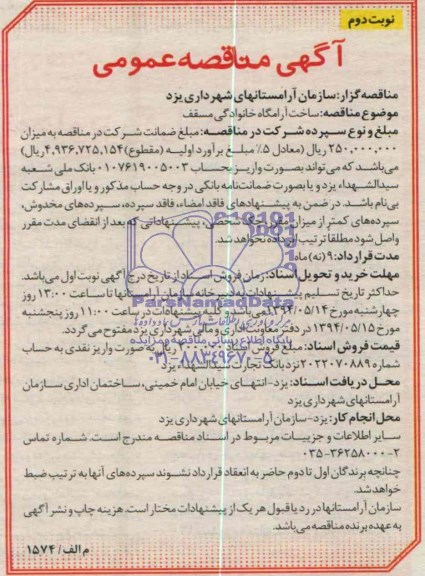 نوبت دوم
آگهی مناقصه عمومی
مناقصه گزار: سازمان آرامستانهای شهرداری یزد
موضوع مناقصه: ساخت آرامگاه خانوادگی مسقف
مبلغ و نوع سپرده شرکت در مناقصه: مبلغ ضمانت شرکت در مناقصه به میزان
۲۵۰,۰۰۰,۰۰۰ ریال (معادل ۵٪ مبلغ برآورد اولیه (مقطوع) ۴,۹۳۶,۷۲۵,۱۵۴ ریال)
می‌باشد که می‌تواند بصورت واریز بحساب ۰۱۰۷۶۱۹۰۰۵۰۰۳ بانک ملی شعبه
سیدالشهداء یزد و یا بصورت ضمانت‌نامه بانکی در وجه حساب مذکور و یا اوراق مشارکت
بی‌نام باشد. در ضمن به پیشنهادهای فاقد امضاء، فاقد سپرده، سپرده‌های مخدوش،
سپرده‌های کمتر از میزان مقرر، چک شخصی، پیشنهاداتی که بعد از انقضای مدت مقرر
واصل شود مطلقا ترتیب اثر داده نخواهد شد.
مدت قرارداد: ۹ (نه) ماه
مهلت خرید و تحویل اسناد: زمان فروش اسناد از تاریخ درج آگهی نوبت اول می‌باشد.
حداکثر تاریخ تسلیم پیشنهادات به دبیرخانه سازمان آرامستانها تا ساعت ۱۳:۰۰ روز
چهارشنبه مورخ ۱۳۹۴/۰۵/۱۴ می‌باشد و کلیه پیشنهادات در ساعت ۱۱:۰۰ روز پنجشنبه
مورخ ۱۳۹۴/۰۵/۱۵ در دفتر معاونت اداری و مالی شهرداری یزد مفتوح می‌گردد.
قیمت فروش اسناد: مبلغ فروش اسناد ریال به صورت واریز نقدی به حساب
شماره ۲۰۲۲۰۷۰۸۸۹ نزد بانک تجارت شعبه سیدالشهداء یزد
محل دریافت اسناد: یزد-انتهای خیابان امام خمینی، ساختمان اداری سازمان
آرامستانهای شهرداری یزد
محل انجام کار: یزد-سازمان آرامستانهای شهرداری یزد
سایر اطلاعات و جزییات مربوط در اسناد مناقصه مندرج است. شماره تماس
۰۳۵-۳۶۲۵۸۰۰۰-۲
چنانچه برندگان اول تا دوم حاضر به انعقاد قرارداد نشوند سپرده‌های آنها به ترتیب ضبط
خواهد شد.
سازمان آرامستانها در رد یا قبول هر یک از پیشنهادات مختار است. هزینه چاپ و نشر آگهی
به عهده برنده مناقصه می‌باشد.
م الف/ ۱۵۷۴
ParsNamadData
پایگاه اطلاع رسانی مناقصه و مزایده
۰۲۱-۸۸۳۴۹۶۷۰-۵